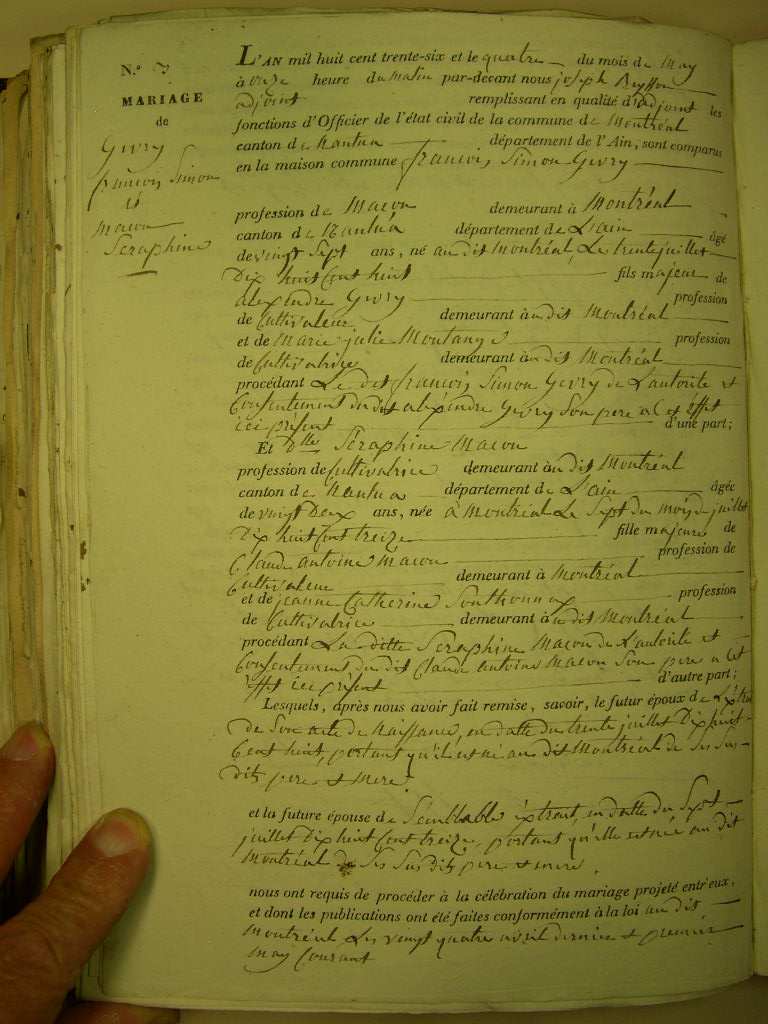 N.º
MARIAGE
de
Givry
françois Simon
&
macon
Seraphine
L'AN mil huit cent trente-six et le quatre du mois de May
à onze heure du matin par-devant nous joseph
adjoint remplissant en qualité d'adjoint les
fonctions d'Officier de l'état civil de la commune de Montréal
canton de Nantua département de l'Ain, sont comparus
en la maison commune françois Simon Givry
profession de Macon demeurant à Montréal
canton de Nantua département de L'ain âgé
de vingt Sept ans, né au dit Montréal, Le trente juillet
Dix huit Cent huit fils majeur de
alexandre Givry profession
de Cultivateur demeurant à u dit Montréal
et de Marie julie Montange profession
de Cultivatrice demeurant à u dit Montréal
procédant Le dit françois Simon Givry de L'autorité et
Consentement du dit alexandre Givry Son pere a Cet effet
ici présent d'une part;
Et dlle Séraphine Macon
profession de Cultivatrice demeurant à u dit Montréal
canton de Nantua département de L'ain âgée
de vingt Deux ans, née à Montréal Le Sept du mois de juillet
Dix huit Cent treize fille majeure de
Claude antoine Macon profession de
Cultivateur demeurant à Montréal
et de jeanne Catherine Southonnax profession
de Cultivatrice demeurant à u dit Montréal
procédant La ditte Seraphine Macon de L'autorité et
Consentement du dit Claude antoine Macon Son pere a Cet
effet ici présent d'autre part;
Lesquels, après nous avoir fait remise, savoir, le futur époux de L'extrait
de Son acte de Naissance, en datte du trente juillet Dix huit
Cent huit, portant qu'il est né au dit Montréal de Ses Sus
dits pere et mere.
et la future épouse de Semblable extrait, en datte du Sept
juillet Dix huit Cent treize, portant qu'elle est née au dit
Montréal de Ses Sus dits pere et mere.
nous ont requis de procéder à la célébration du mariage projeté entr'eux,
et dont les publications ont été faites conformément à la loi au dit
Montréal Les vingt quatre avril dernier et premier
may Courant